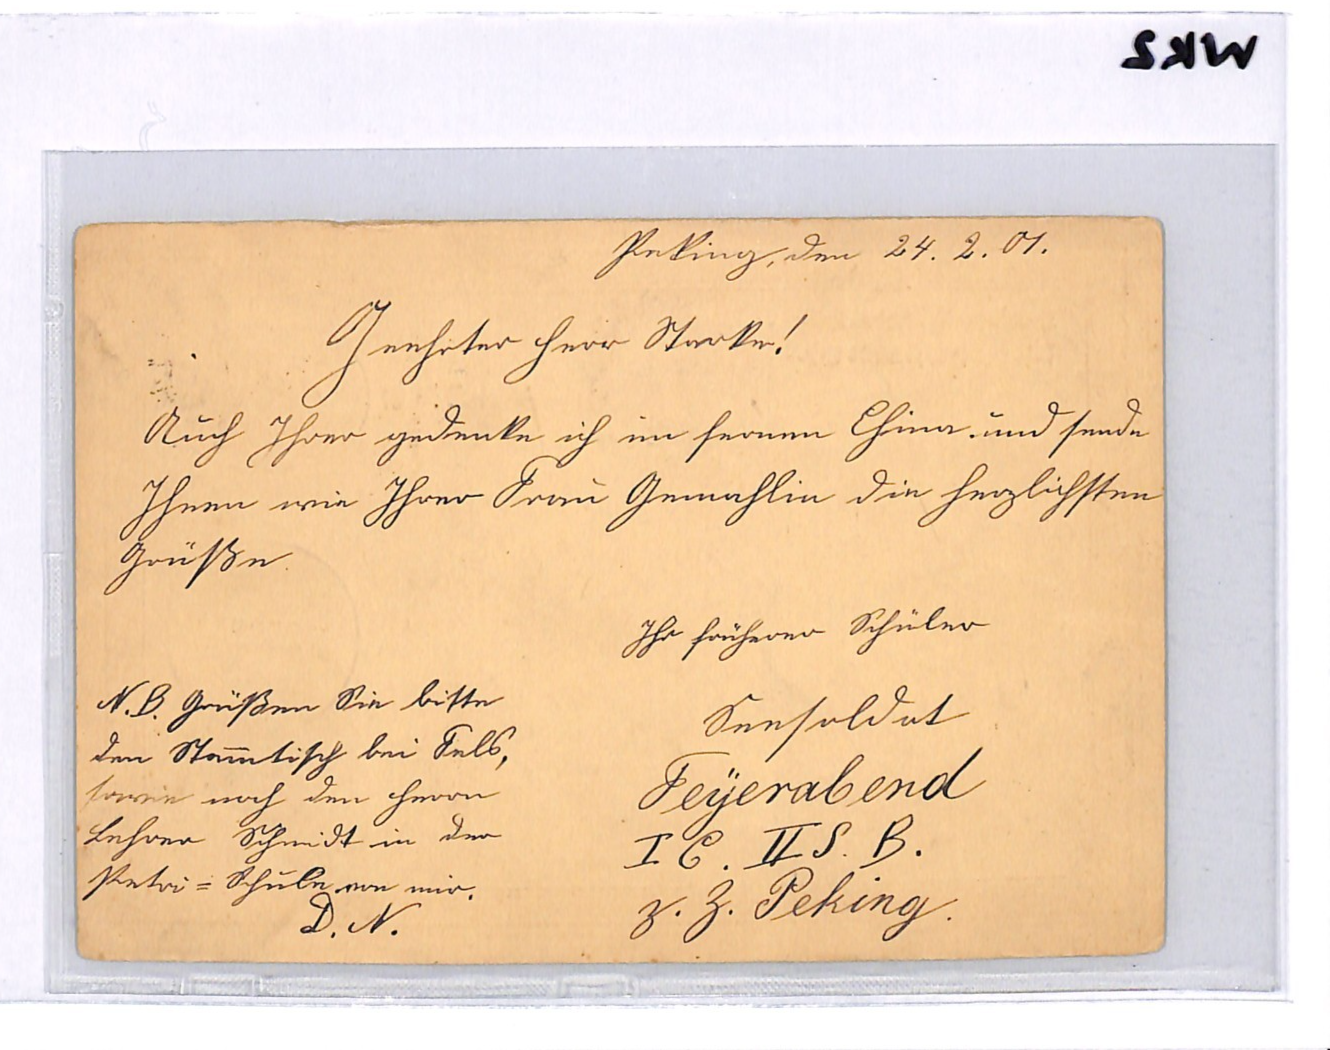 WK2
Peking, den 24. 2. 01.
Geehrter Herr Starke!
Auch Ihrer gedenke ich im fernen China und sende
Ihnen wie Ihrer Frau Gemahlin die herzlichsten
Grüße.
Ihr früherer Schüler
Seesoldat
Feÿerabend
I C. II S. B.
z. Z. Peking.
N.B. Grüßen Sie bitte
den Stam̄tisch bei Fels,
sowie noch den Herrn
Lehrer Schmidt in der
Petri=Schule von mir.
D. N.